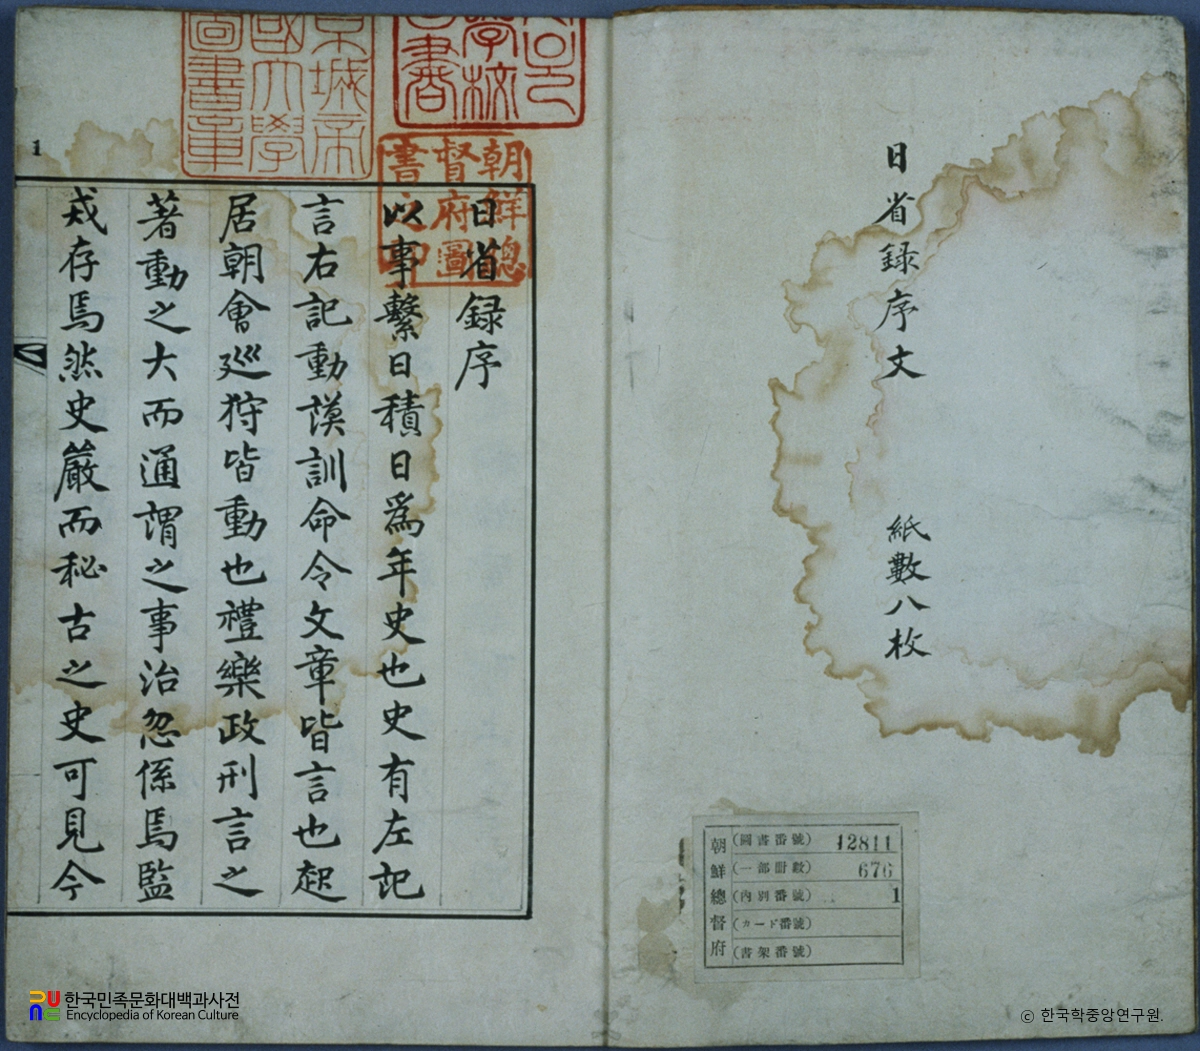 日省録序文 紙數八枚
朝鮮總督府
(圖書番號) 12811
(一部冊數) 676
(內別番號) 1
(カード番號)
(書架番號)
京城帝
國大學
圖書章
學校
書
朝鮮總
督府圖
書之印
1
日省録序
以事繫日積日爲年史也史有左記
言右記動謨訓命令文章皆言也起
居朝會巡狩皆動也禮樂政刑言之
著動之大而通謂之事治忽係焉監
戒存焉然史嚴而秘古之史可見今
한국민족문화대백과사전
Encyclopedia of Korean Culture
ⓒ 한국학중앙연구원.